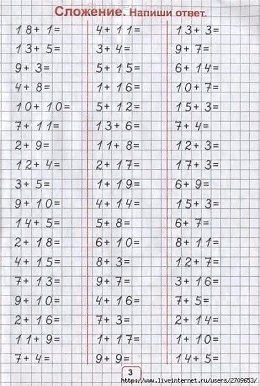 Сложение. Напиши ответ.
18+1= 4+11= 13+3=
13+5= 3+4= 9+7=
9+3= 5+15= 6+14=
4+8= 1+16= 10+7=
10+10= 5+12= 15+3=
7+11= 13+6= 7+4=
2+9= 11+8= 12+3=
12+4= 2+17= 17+3=
3+5= 1+19= 6+9=
9+10= 4+14= 15+3=
14+5= 5+8= 6+7=
2+18= 6+10= 8+11=
4+15= 8+3= 12+7=
7+13= 9+7= 3+16=
9+10= 4+16= 7+5=
2+16= 7+3= 2+14=
11+9= 1+17= 1+10=
7+4= 9+9= 14+5=
3
https://www.liveinternet.ru/users/2709653/